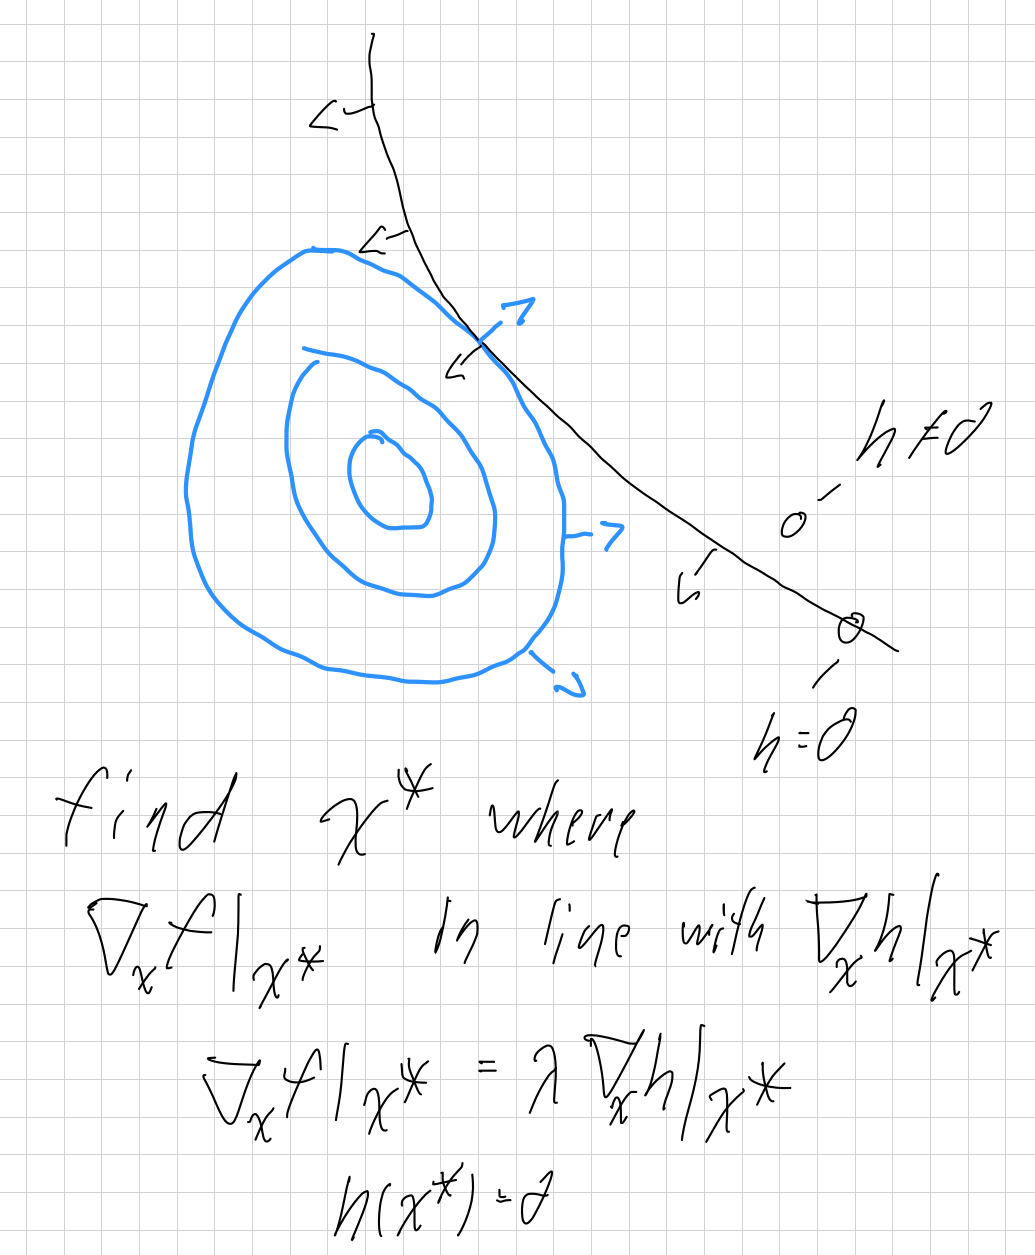 h ≠ 0
h = 0
find x* where
∇ₓf|ₓ* in line with ∇ₓh|ₓ*
∇ₓf|ₓ* = λ∇ₓh|ₓ*
h(x*) = 0